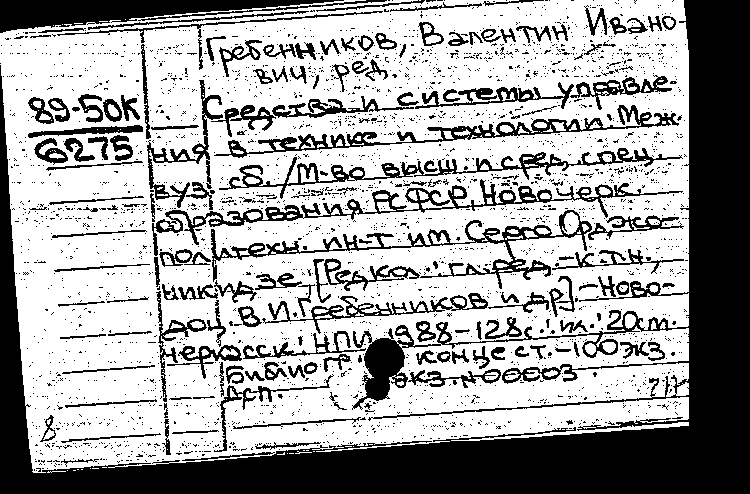 Гребенников, Валентин Ивано-
вич, ред.
89-50К
6275
Средства и системы управле-
ния в технике и технологии: Меж-
вуз. сб. / М-во высш. и сред. спец.
образования РСФСР, Новочерк.
политехн. ин-т им. Серго Орджо-
никидзе; [Редкол.: гл. ред. - к.т.н.,
доц. В.И. Гребенников и др]. - Ново-
черкасск: НПИ, 1988 - 128с.: ил.; 20см.
Библиогр. конце ст. - 100экз.
Дсп. экз. N00003.
8